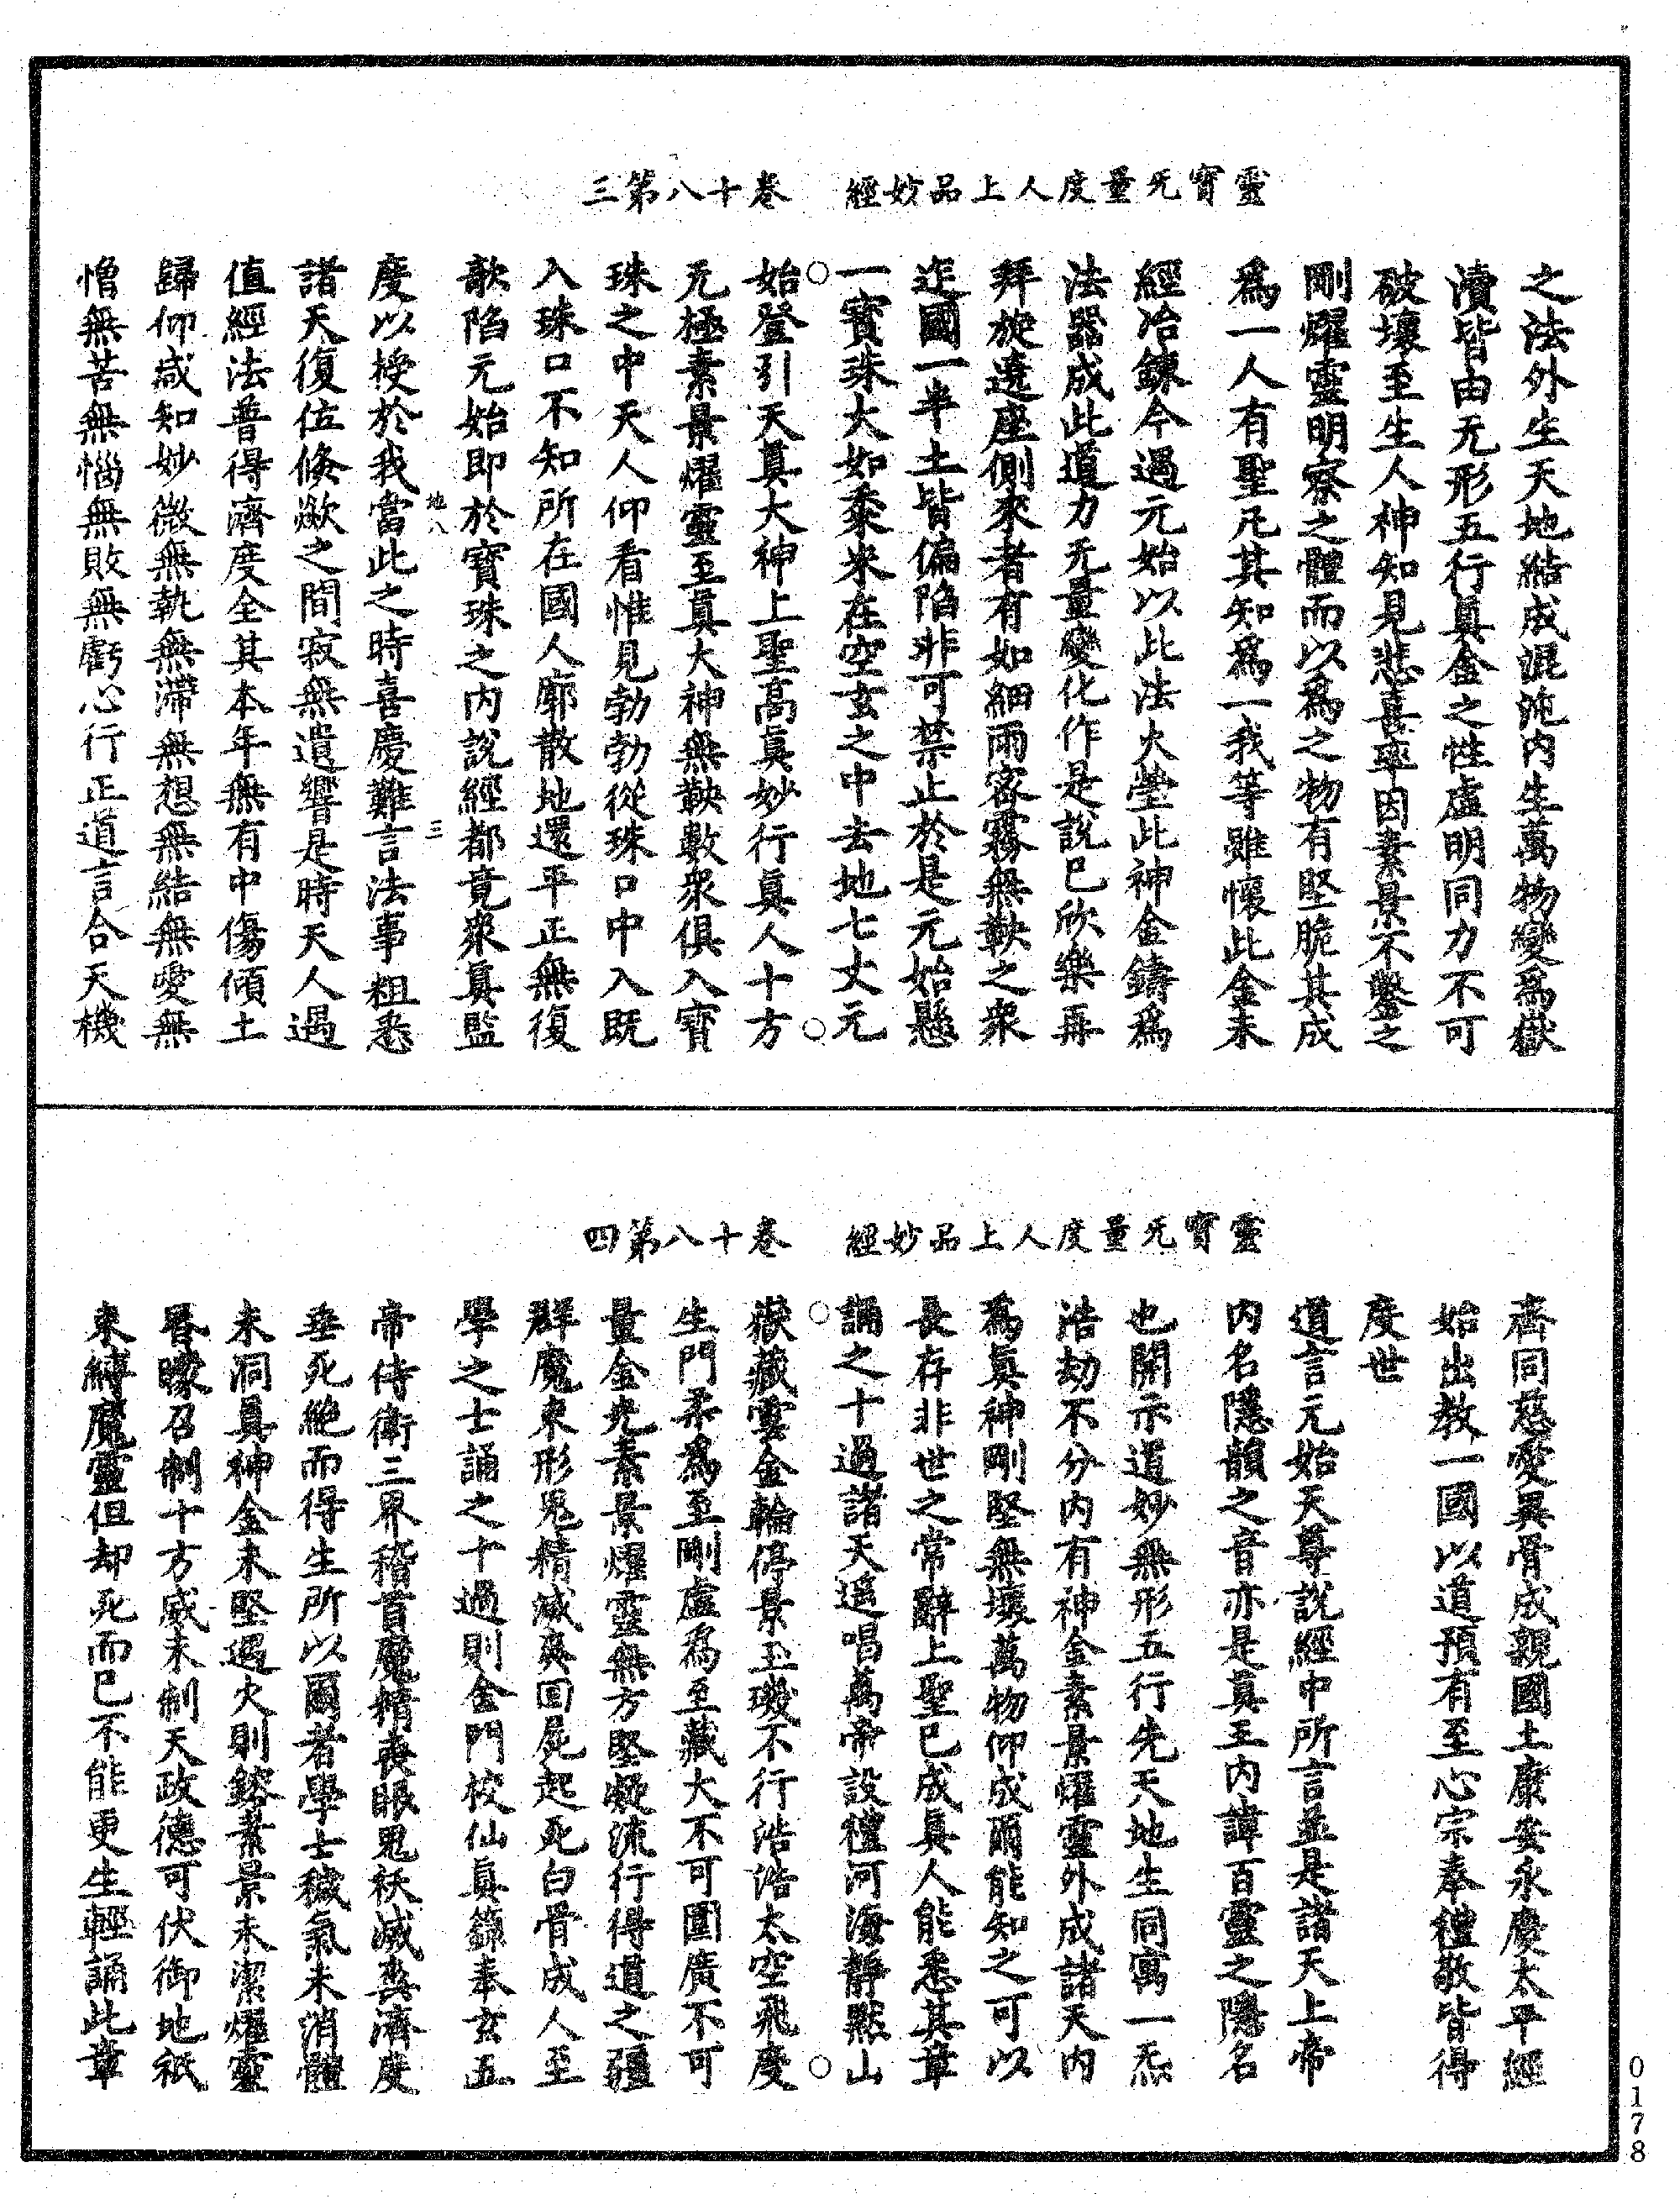 靈寶无量度人上品妙經　卷十八第三
之法外生天地結成混沌内生萬物變爲嶽
瀆皆由无形五行眞金之性虛明同力不可
破壞至生人神知見悲喜率因素景不鑿之
剛燿靈明察之體而以爲之物有堅脆其成
爲一人有聖凡其知爲一我等雖懷此金未
經冶鍊今過元始以此法火瑩此神金鑄爲
法器成此道力无量變化作是說已欣樂再
拜旋遶座側來者有如細雨密霧無鞅之衆
迮國一半土皆偏陷非可禁止於是元始懸
一寶珠大如黍米在空玄之中去地七丈元
始登引天眞大神上聖高眞妙行眞人十方
无極素景燿靈至眞大神無鞅數衆俱入寶
珠之中天人仰看惟見勃勃從珠口中入既
入珠口不知所在國人廓散地還平正無復
欹陷元始即於寶珠之内說經都竟衆眞監
地八　三
度以授於我當此之時喜慶難言法事粗悉
諸天復位倏歘之間寂無遺響是時天人遇
值經法普得濟度全其本年無有中傷傾土
歸仰咸知妙微無執無滯無想無結無愛無
憎無苦無惱無敗無虧心行正道言合天機
靈寶无量度人上品妙經　卷十八第四
齊同慈愛異骨成親國土康安永慶太平經
始出教一國以道預有至心宗奉禮敬皆得
度世
道言元始天尊說經中所言並是諸天上帝
内名隱韻之音亦是眞王内諱百靈之隱名
也開示道妙無形五行先天地生同寓一炁
浩劫不分内有神金素景燿靈外成諸天内
爲眞神剛堅無壞萬物仰成爾能知之可以
長存非世之常辭上聖已成眞人能悉其章
誦之十過諸天遥唱萬帝設禮河海靜默山
嶽藏雲金輪停景玉璈不行浩浩太空飛度
生門柔爲至剛虛爲至藏大不可圍廣不可
量金光素景燿靈無方堅凝流行得道之疆
群魔束形鬼精滅爽回屍起死白骨成人至
學之士誦之十過則金門校仙眞籙奉玄五
帝侍衛三界稽首魔精喪眼鬼祆滅爽濟度
垂死絶而得生所以爾者學士穢氣未消體
未洞眞神金未堅遇火則鎔素景未潔燿靈
昏曚召制十方威未制天政德可伏御地祇
束縛魔靈但却死而已不能更生輕誦此章
0178